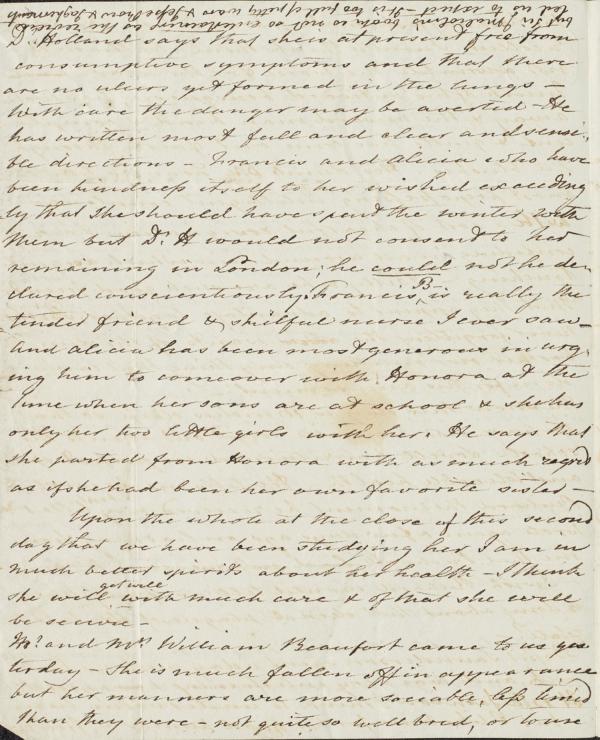 but Sir J Malcolm's book is not so entertaining as the reviews
led us to expect - It is too full of petty wars &
Dr. Holland says that she is at present free from
consumptive symptoms and that there
are no ulcers yet formed in the lungs -
With care the danger may be averted - He
has written most full and clear and sensi
ble directions - Francis and Alicia who have
been kindness itself to her wished exceeding
ly that she should have spent the winter with
them but Dr. H would not consent to her
remaining in London; he could not he de
clared conscientiously. Francis B is really the
tender friend & skilful nurse I ever saw -
and Alicia has been most generous in urg
ing him to come over with Honora at the
time when her sons are at school & she has
only her two little girls with her. He says that
she parted from Honora with as much regret
as if she had been her own favorite sister -
Upon the whole at the close of this second
day that we have been studying her I am in
much better spirits about her health - I think
she will get well with much care & of that she will
be secure -
Mr. and Mrs. William Beaufort came to us yes
terday - She is much fallen off in appearance
but her manners are more sociable, less timid
than they were - not quite so well bred, or to use